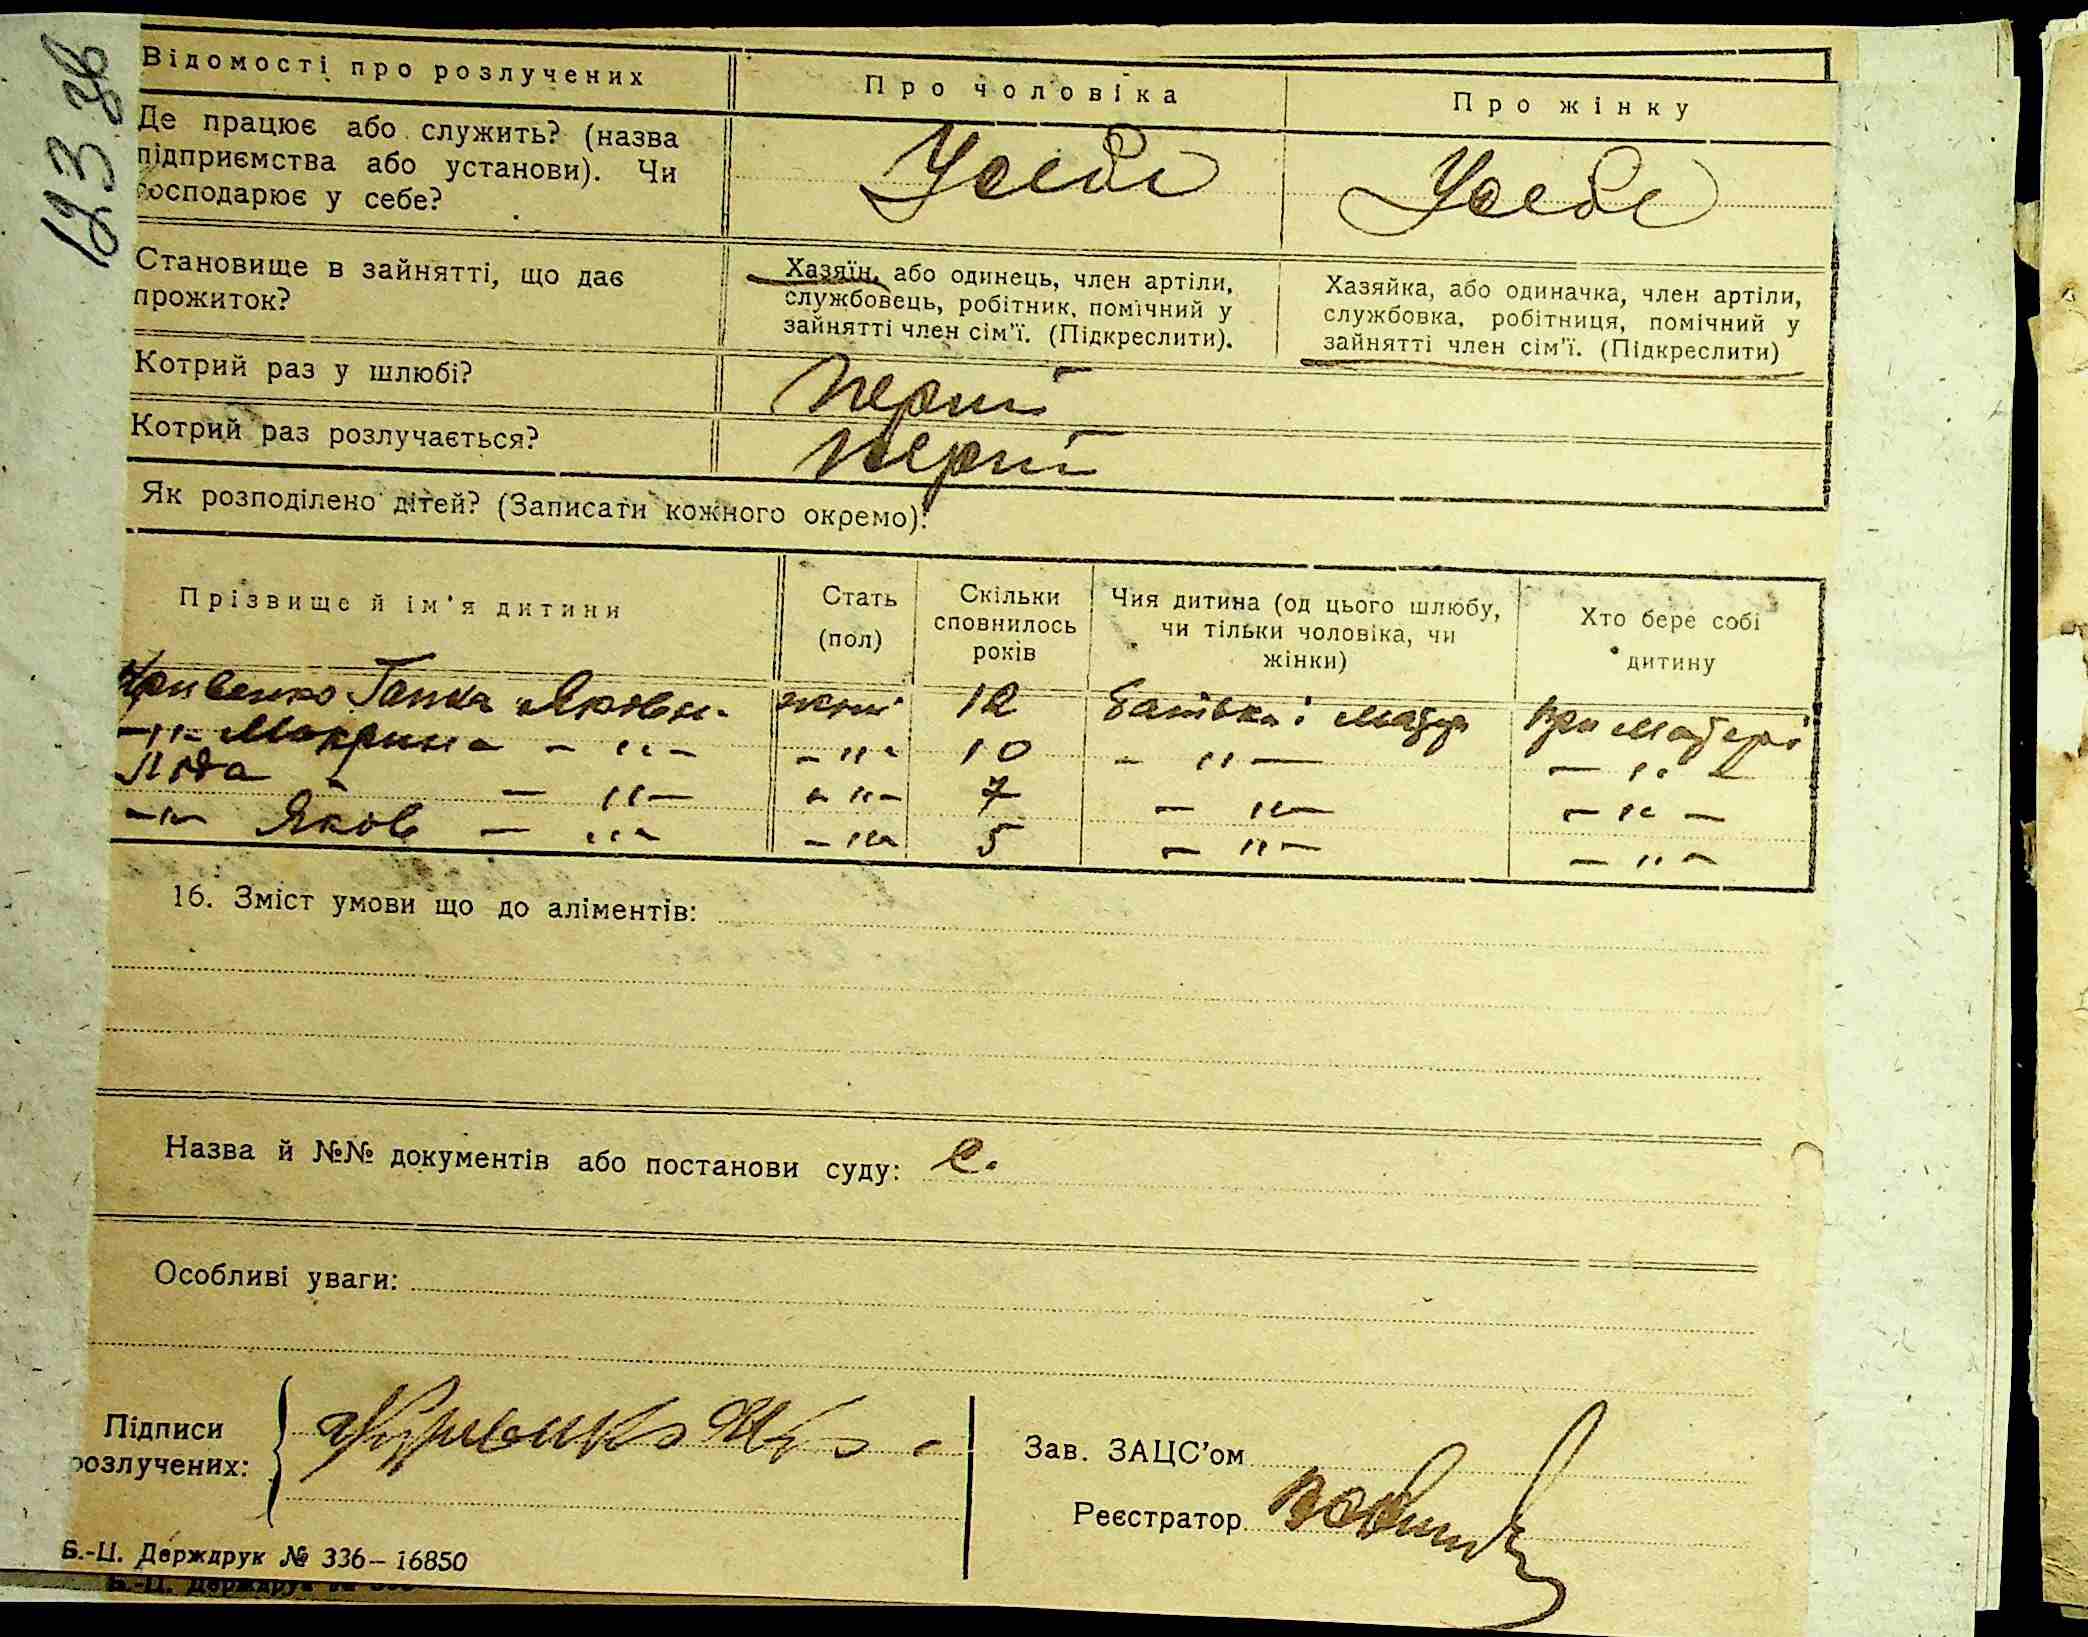 123 зв
Відомості про розлучених
Про чоловіка
Про жінку
Де працює або служить? (назва
підприємства або установи). Чи
господарює у себе?
У себе
У себе
Становище в зайнятті, що дає
прожиток?
Хазяїн, або одинець, член артіли,
службовець, робітник, помічний у
зайнятті член сім'ї. (Підкреслити).
Хазяйка, або одиначка, член артіли,
службовка, робітниця, помічний у
зайнятті член сім'ї. (Підкреслити)
Котрий раз у шлюбі?
Котрий раз розлучається?
Як розподілено дітей? (Записати кожного окремо):
Прізвище й ім'я дитини
Стать
(пол)
Скільки
сповнилось
років
Чия дитина (од цього шлюбу,
чи тільки чоловіка, чи
жінки)
Хто бере собі
дитину
Кривенко Ганка Яковл. 12 при матері
-"- Макрина - "- -"- 10 - "- - "-
Ліда - "- -"- 7 - "- - "-
-"- Яков - "- -"- 5 - "- - "-
16. Зміст умови що до аліментів:
Назва й №№ документів або постанови суду:
Особливі уваги:
Підписи
розлучених:
Зав. ЗАЦС'ом
Реєстратор
Б.-Ц. Держдрук № 336–16850